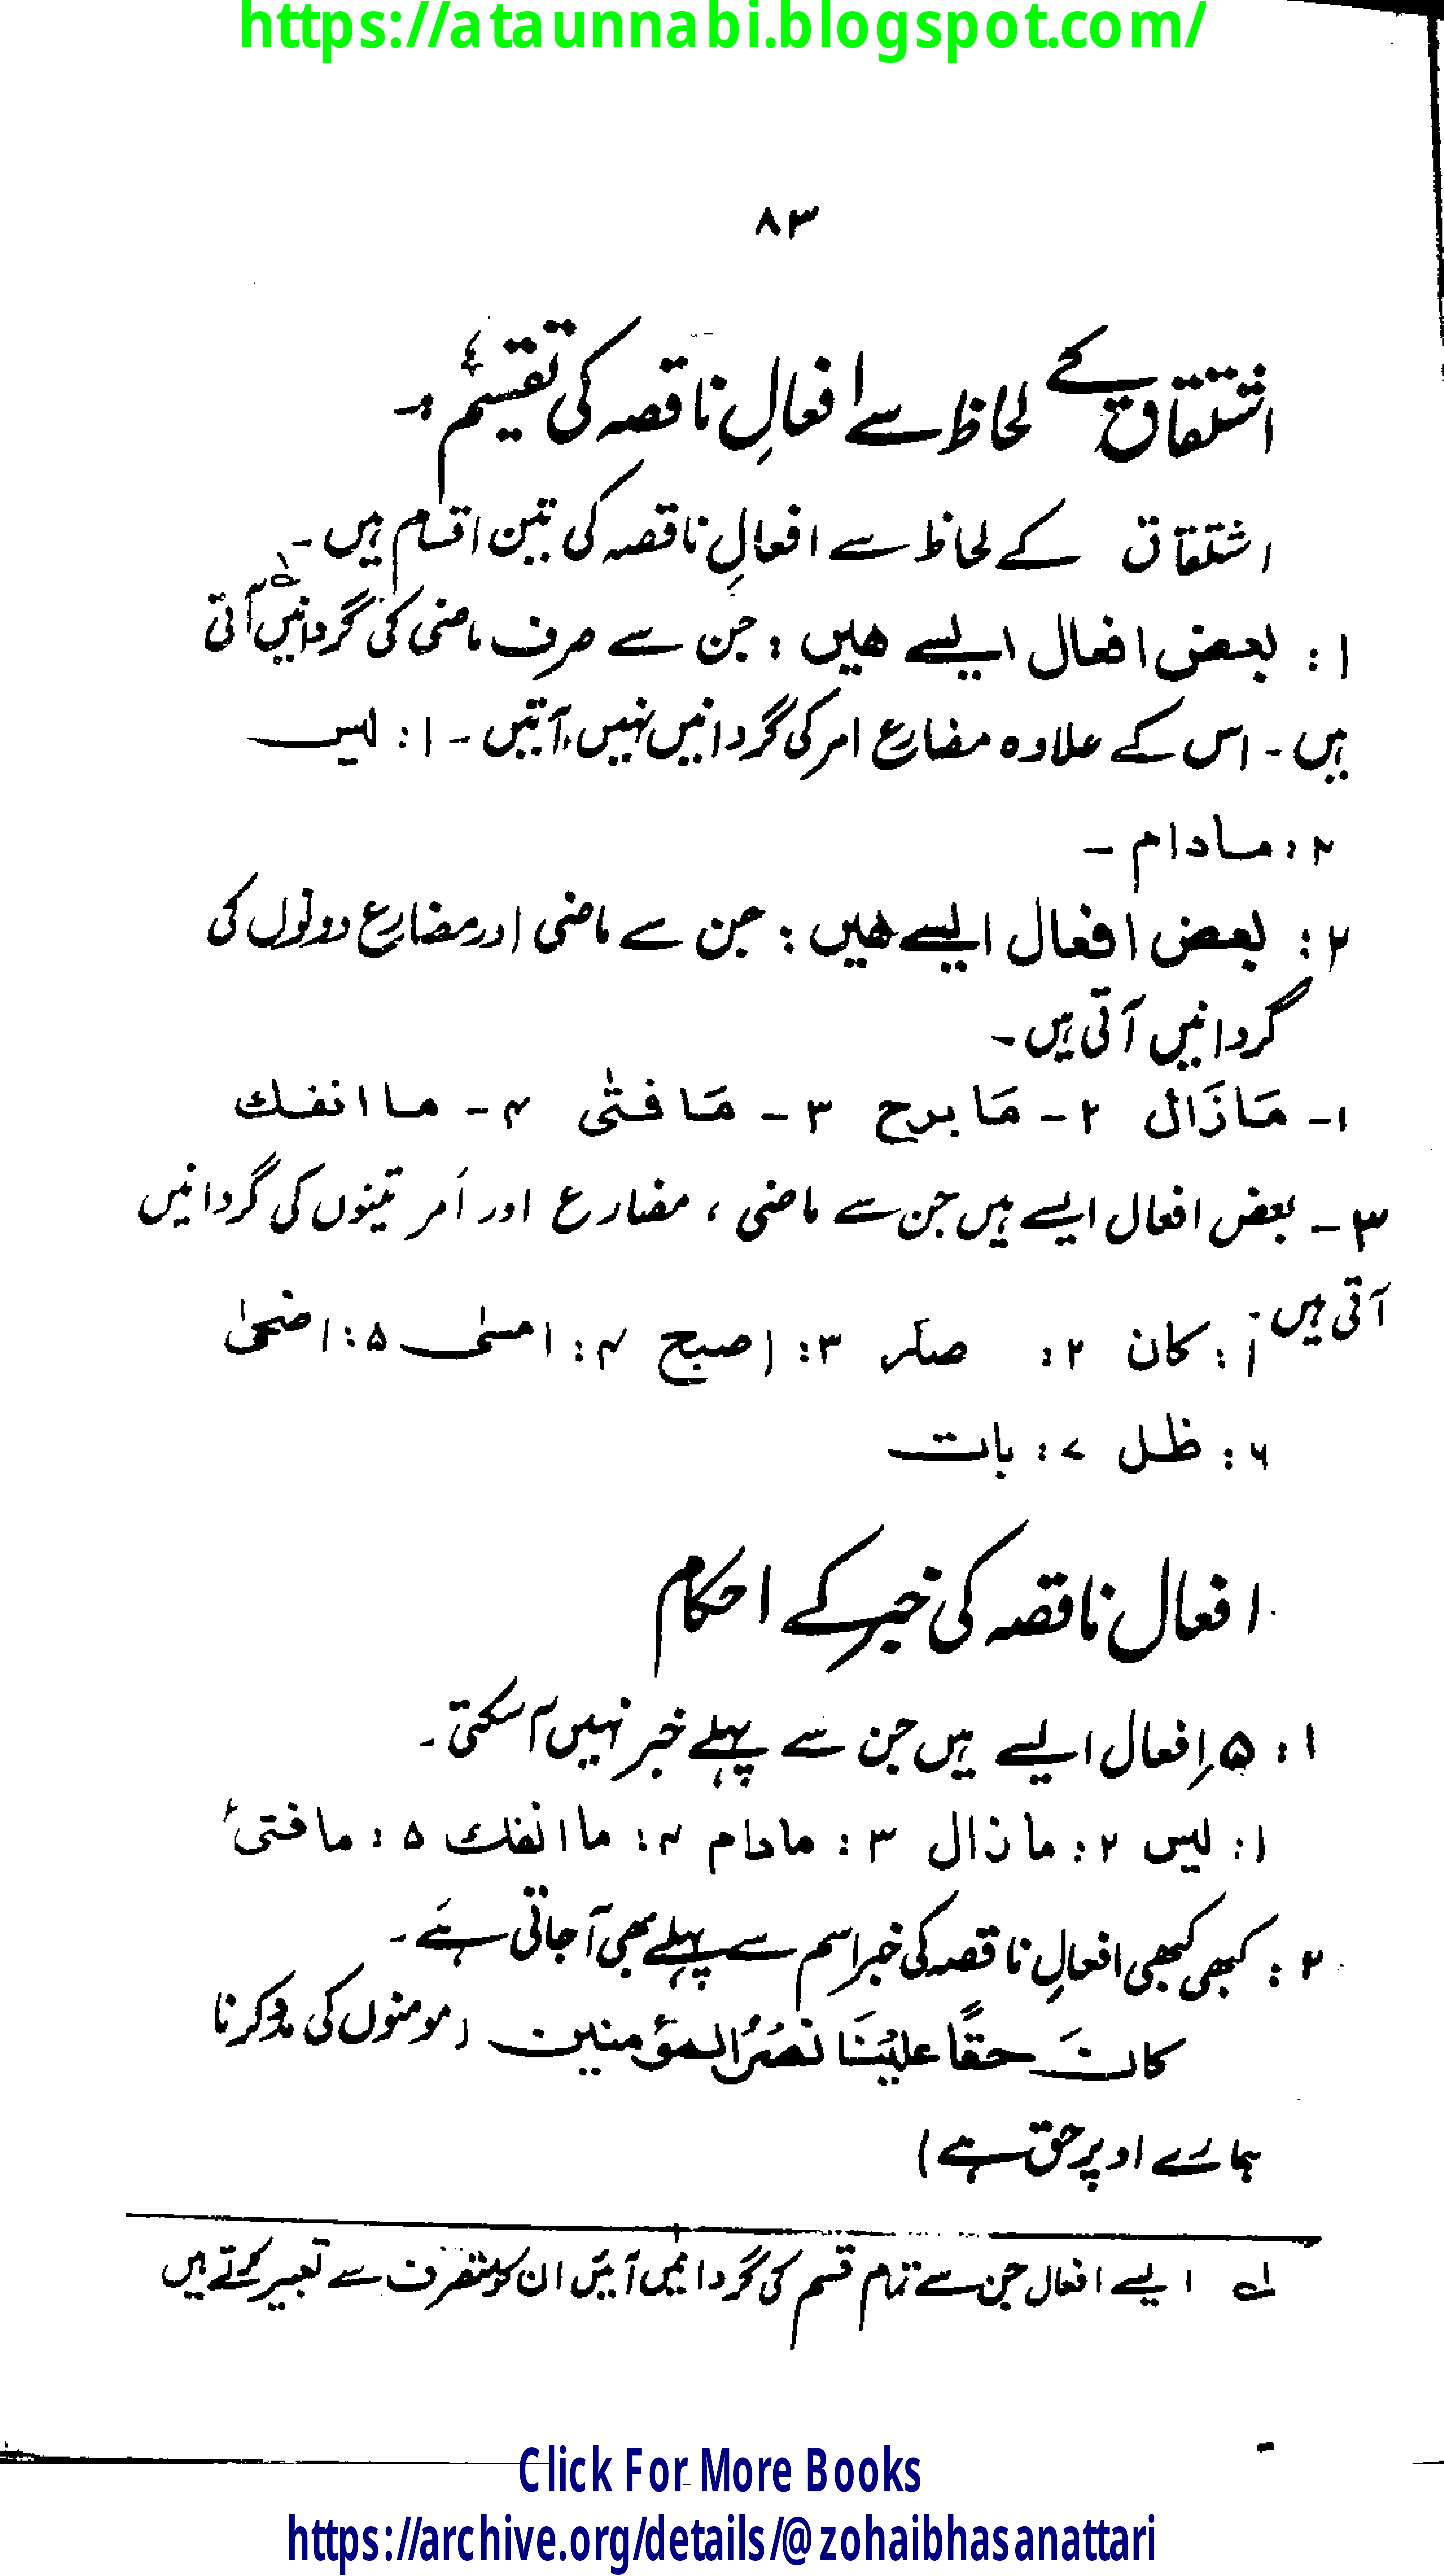 https://ataunnabi.blogspot.com/
۸۳
اشتقاق کے لحاظ سے افعالِ ناقصہ کی تقسیم :۔
اشتقاق کے لحاظ سے افعالِ ناقصہ کی تین اقسام ہیں۔
۱: بعض افعال ایسے ھیں : جن سے صرف ماضی کی گردانیں لہ آتی
ہیں۔ اس کے علاوہ مضارع امر کی گردانیں نہیں آتیں۔ ۱: لیس
۲: مادام ۔
۲: بعض افعال ایسے ھیں : جن سے ماضی اور مضارع دونوں کی
گردانیں آتی ہیں۔
۱۔ مَازَال ۲۔ مَابرح ۳۔ مَافتٰی ۴۔ ماانفك
۳۔ بعض افعال ایسے ہیں جن سے ماضی ، مضارع اور اَمر تینوں کی گردانیں
آتی ہیں۔
۱: کان ۲: صار ۳: اصبح ۴: امسٰی ۵: اضحیٰ
۶: ظل ۷: بات
افعال ناقصہ کی خبر کے احکام
۱: ۵ اِفعال ایسے ہیں جن سے پہلے خبر نہیں آسکتی۔
۱: لیس ۲: مازال ۳: مادام ۴: ماانفك ۵: مافتیٔ
۲: کبھی کبھی افعالِ ناقصہ کی خبر اسم سے پہلے بھی آجاتی ہے۔
کانَ حقًا علیْنَا نصْرُ المؤمنین (مومنوں کی مدد کرنا
ہمارے اوپر حق ہے)
لہ ایسے افعال جن سے تمام قسم کی گردانیں آئیں ان کو متصرف سے تعبیر کرتے ہیں
Click For More Books
https://archive.org/details/@zohaibhasanattari